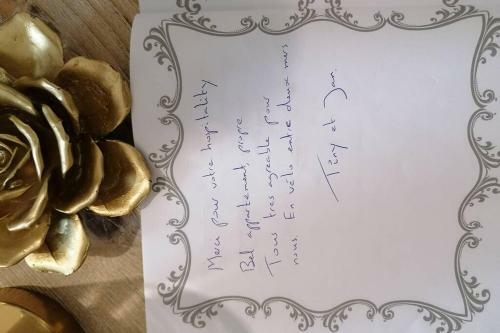 Merci pour votre hospitality
Bel appartement, propre
Tous très agreable pour
nous. En vélo entre deux mers
Tiny et Jan.